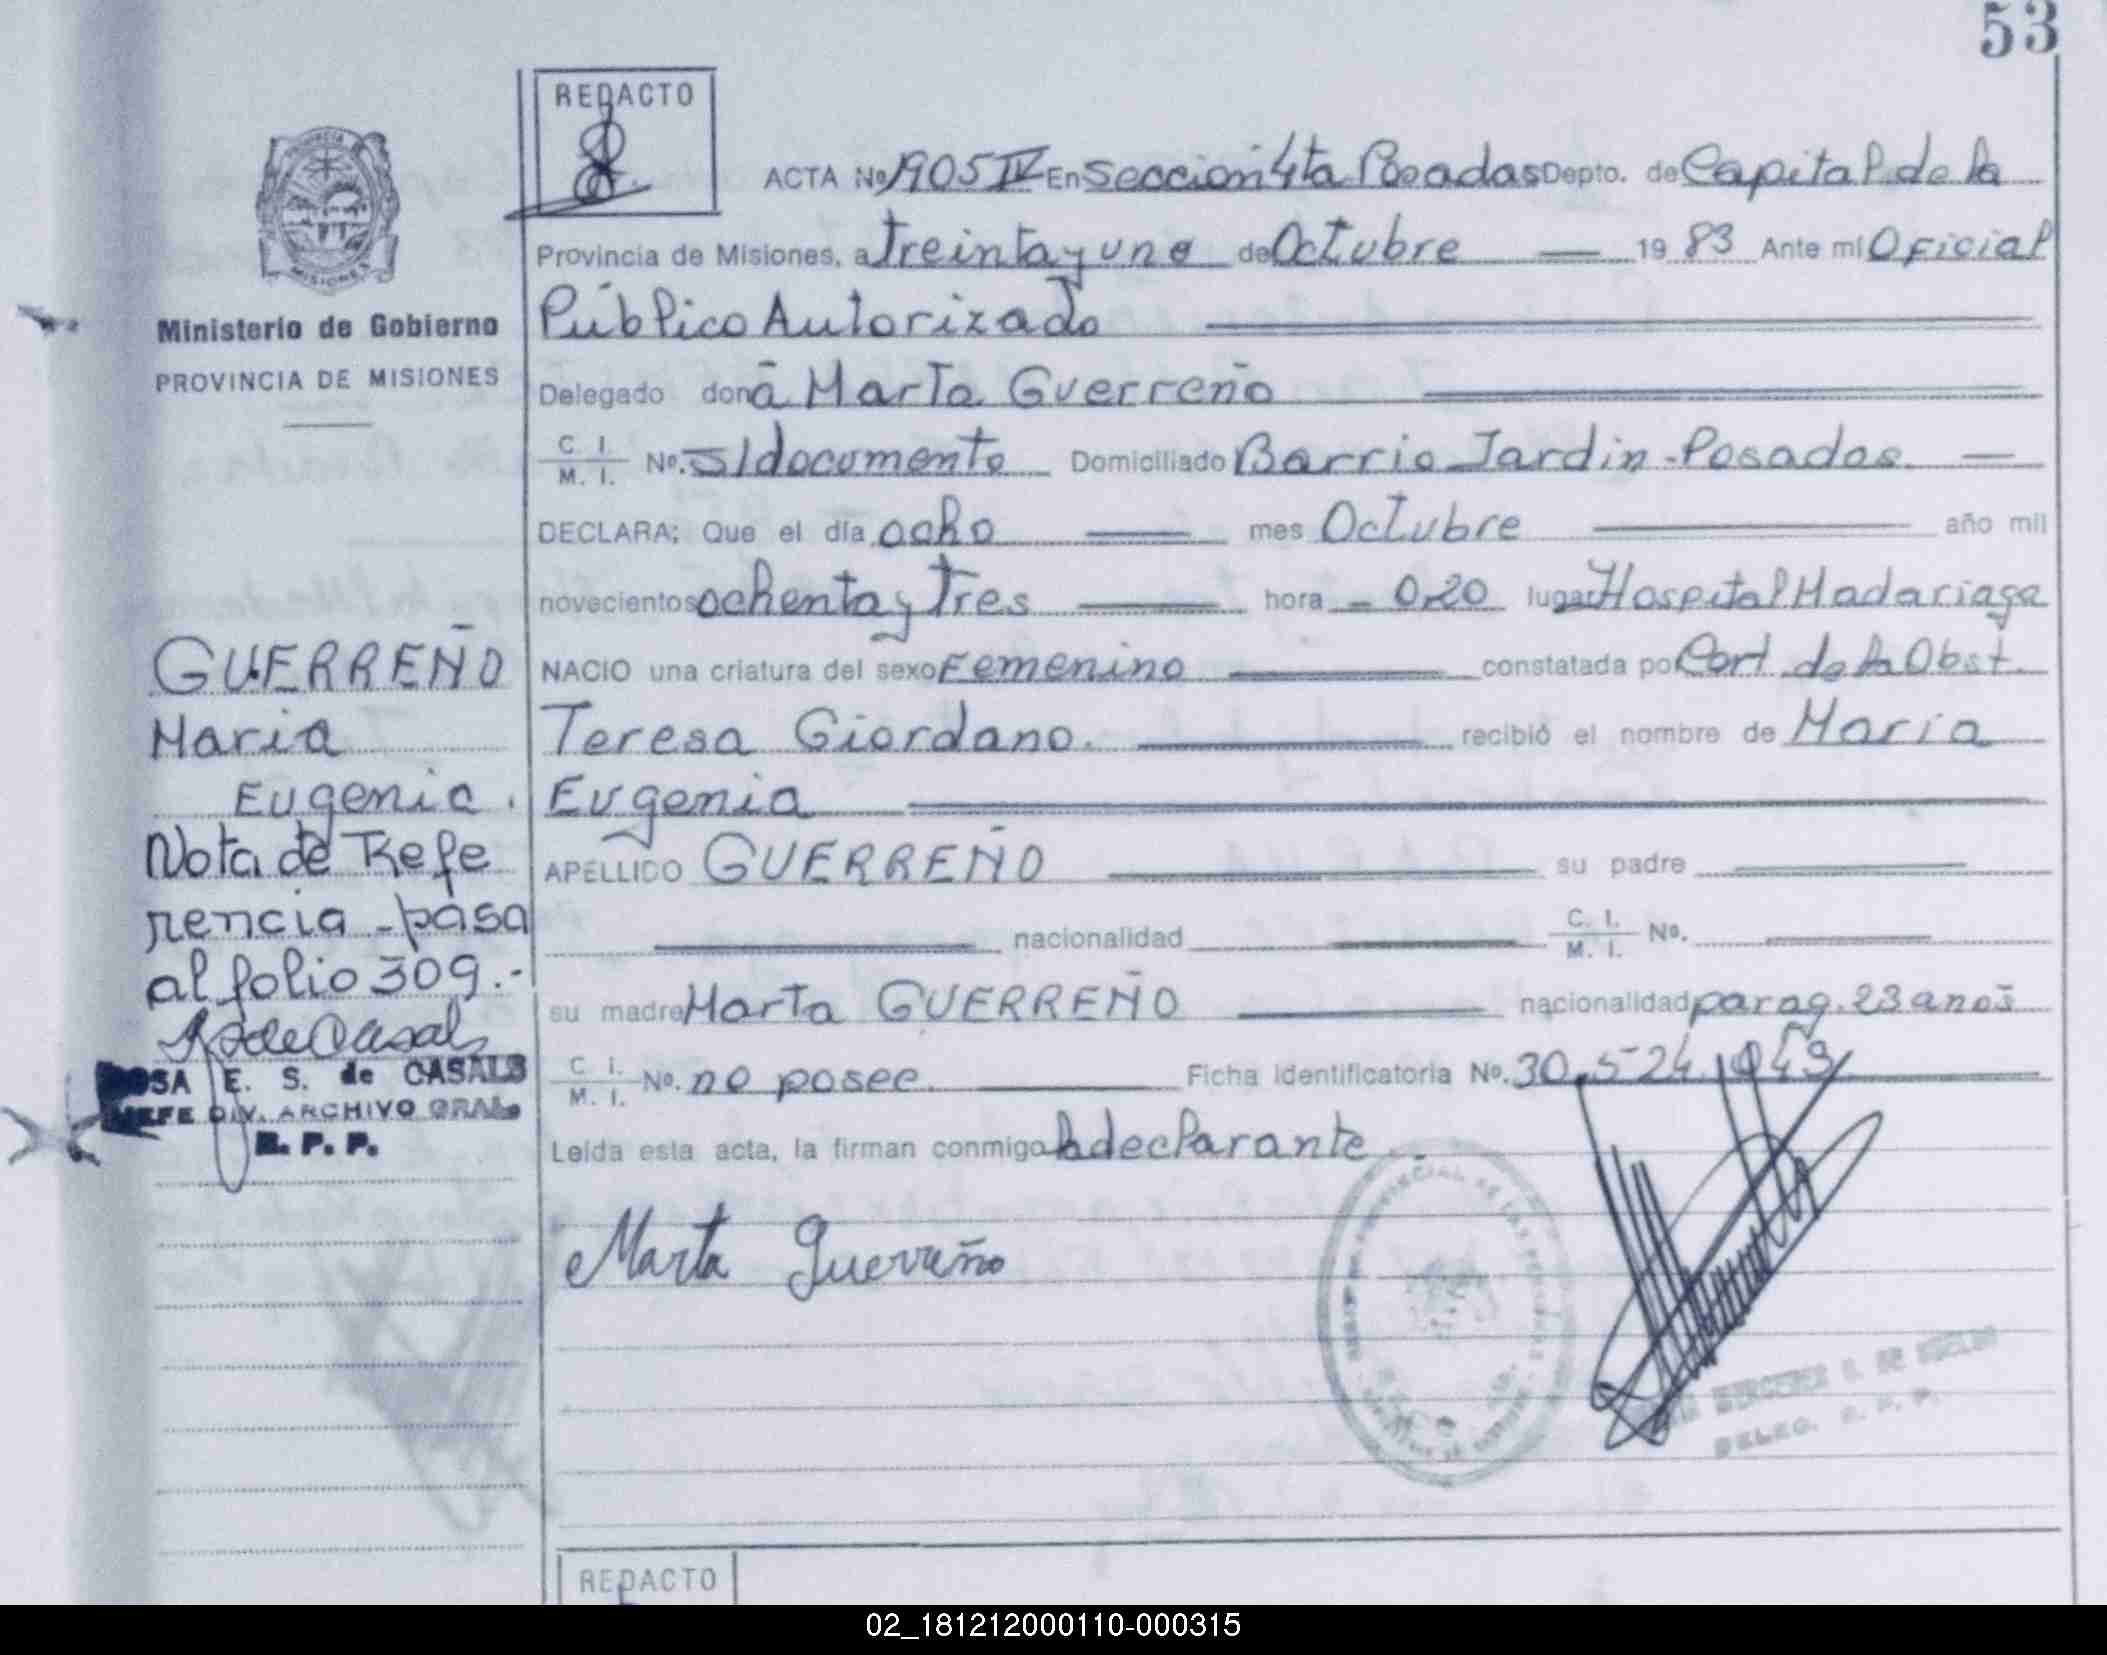 53
REDACTO
ACTA Nº 1905 IV En Sección 4ta Posadas Depto. de Capital de la
Provincia de Misiones, a treinta y uno de Octubre 1983 Ante mí Oficial
Público Autorizado
Delegado donã Marta Guerreño
C. I.
M. I. Nº. s/documento Domiciliado Barrio Jardin-Posadas
DECLARA; Que el día ocho mes Octubre año mil
novecientos ochenta y tres hora 0,20 lugar Hospital Madariaga
NACIO una criatura del sexo Femenino constatada por Cert. de la Obst.
Teresa Giordano. recibió el nombre de Maria
Eugenia
APELLIDO GUERREÑO su padre
nacionalidad C. I.
M. I. Nº.
su madre Marta GUERREÑO nacionalidad parag. 23 anos
C. I.
M. I. Nº. no posee. Ficha Identificatoria Nº. 30.524.049
Leída esta acta, la firman conmigo la declarante
Marta Guerreño
PROVINCIA
MISIONES
Ministerio de Gobierno
PROVINCIA DE MISIONES
GUERREÑO
Maria
Eugenia.
Nota de Refe
rencia - pasa
al folio 309.-
ROSA E. S. de CASALS
JEFE DIV. ARCHIVO GRAL.
R. P. P.
DELEG. R. P. P.
REDACTO
02_181212000110-000315